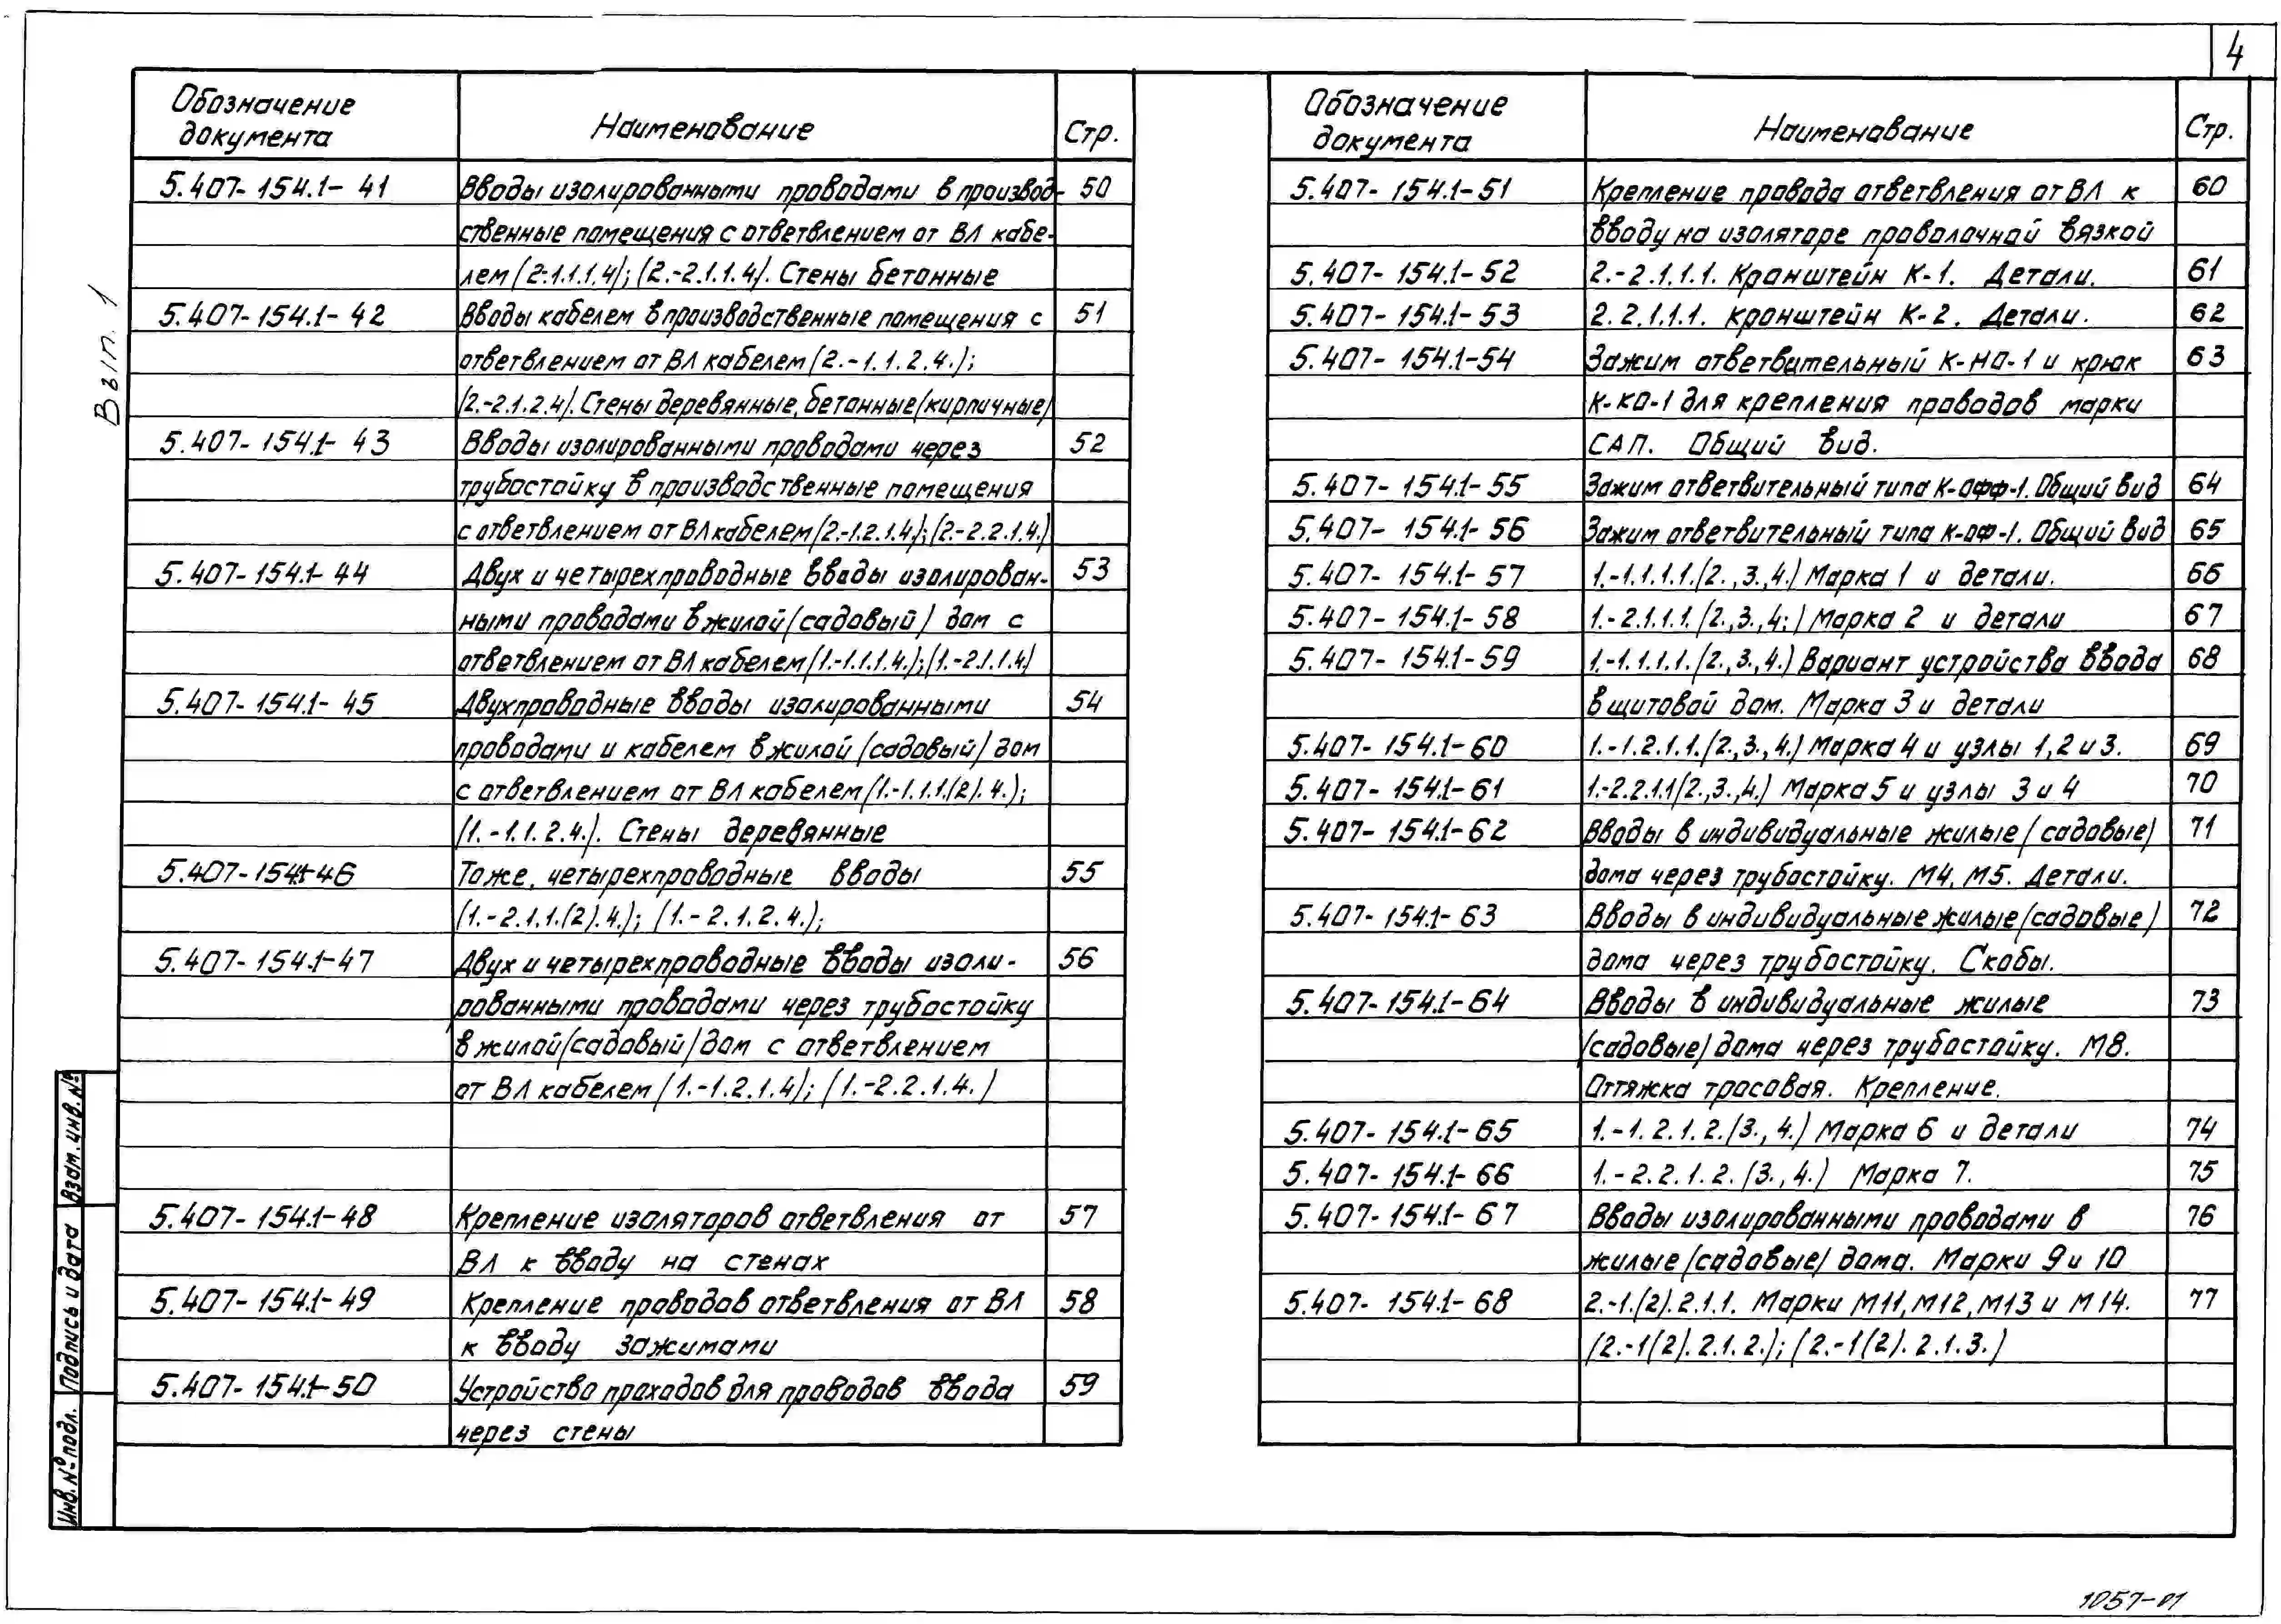 4
Обозначение документа Наименование Стр.
5.407-154.1-41 Вводы изолированными проводами в производ- 50
ственные помещения с ответвлением от ВЛ кабе-
лем (2-1.1.1.4); (2.-2.1.1.4). Стены бетонные
5.407-154.1-42 Вводы кабелем в производственные помещения с 51
ответвлением от ВЛ кабелем (2.-1.1.2.4.);
(2.-2.1.2.4). Стены деревянные, бетонные (кирпичные)
5.407-154.1-43 Вводы изолированными проводами через 52
трубостойку в производственные помещения
с ответвлением от ВЛ кабелем (2.-1.2.1.4.); (2.-2.2.1.4.)
5.407-154.1-44 Двух и четырехпроводные вводы изолирован- 53
ными проводами в жилой (садовый) дом с
ответвлением от ВЛ кабелем (1.-1.1.1.4.); (1.-2.1.1.4.)
5.407-154.1-45 Двухпроводные вводы изолированными 54
проводами и кабелем в жилой (садовый) дом
с ответвлением от ВЛ кабелем (1.-1.1.1.(2).4.);
(1.-1.1.2.4.). Стены деревянные
5.407-154.1-46 Тоже, четырехпроводные вводы 55
(1.-2.1.1.(2).4.); (1.-2.1.2.4.);
5.407-154.1-47 Двух и четырехпроводные вводы изоли- 56
рованными проводами через трубостойку
в жилой (садовый) дом с ответвлением
от ВЛ кабелем (1.-1.2.1.4); (1.-2.2.1.4.)
5.407-154.1-48 Крепление изоляторов ответвления от 57
ВЛ к вводу на стенах
5.407-154.1-49 Крепление проводов ответвления от ВЛ 58
к вводу зажимами
5.407-154.1-50 Устройство проходов для проводов ввода 59
через стены
Обозначение документа Наименование Стр.
5.407-154.1-51 Крепление провода ответвления от ВЛ к 60
вводу на изоляторе проволочной вязкой
5.407-154.1-52 2.-2.1.1.1. Кранштейн К-1. Детали. 61
5.407-154.1-53 2.2.1.1.1. Кронштейн К-2. Детали. 62
5.407-154.1-54 Зажим ответвительный К-НО-1 и крюк 63
К-КО-1 для крепления проводов марки
САП. Общий вид.
5.407-154.1-55 Зажим ответвительный типа К-ОФФ-1. Общий вид 64
5.407-154.1-56 Зажим ответвительный типа К-ОФ-1. Общий вид 65
5.407-154.1-57 1.-1.1.1.1.(2.,3.,4.) Марка 1 и детали. 66
5.407-154.1-58 1.-2.1.1.1.(2.,3.,4.) Марка 2 и детали 67
5.407-154.1-59 1.-1.1.1.1.(2.,3.,4.) Вариант устройства ввода 68
в щитовой дом. Марка 3 и детали
5.407-154.1-60 1.-1.2.1.1.(2.,3.,4.) Марка 4 и узлы 1,2 и 3. 69
5.407-154.1-61 1.-2.2.1.1(2.,3.,4.) Марка 5 и узлы 3 и 4 70
5.407-154.1-62 Вводы в индивидуальные жилые (садовые) 71
дома через трубостойку. М4, М5. Детали.
5.407-154.1-63 Вводы в индивидуальные жилые (садовые) 72
дома через трубостойку. Скобы.
5.407-154.1-64 Вводы в индивидуальные жилые 73
(садовые) дома через трубостойку. М8.
Оттяжка тросовая. Крепление.
5.407-154.1-65 1.-1.2.1.2.(3.,4.) Марка 6 и детали 74
5.407-154.1-66 1.-2.2.1.2.(3.,4.) Марка 7. 75
5.407-154.1-67 Вводы изолированными проводами в 76
жилые (садовые) дома. Марки 9 и 10
5.407-154.1-68 2.-1.(2).2.1.1. Марки М11, М12, М13 и М14. 77
(2.-1(2).2.1.2.); (2.-1(2).2.1.3.)
Вып. 1
Взам. инв. №
Подпись и дата
Инв. № подл.
1057-01